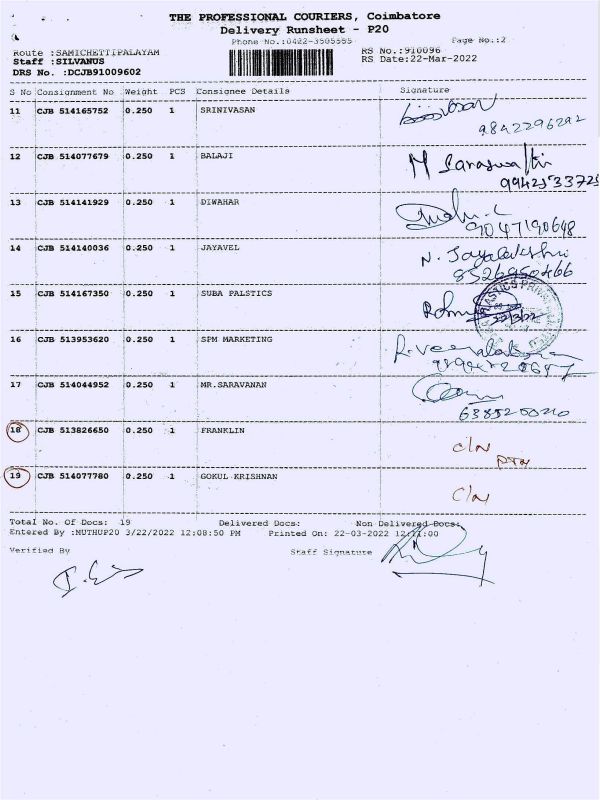 THE PROFESSIONAL COURIERS, Coimbatore
Delivery Runsheet - P20
Phone No.:0422-3505555
Page No.:2
Route :SAMICHETTIPALAYAM
RS No.:910096
Staff :SILVANUS
RS Date:22-Mar-2022
DRS No. :DCJB91009602
S No Consignment No Weight PCS Consignee Details Signature
11 CJB 514165752 0.250 1 SRINIVASAN
9842296292
12 CJB 514077679 0.250 1 BALAJI M Saraswathi
9942533725
13 CJB 514141929 0.250 1 DIWAHAR
9047190648
14 CJB 514140036 0.250 1 JAYAVEL N. Jayalakshmi
8526950466
15 CJB 514167350 0.250 1 SUBA PALSTICS
16 CJB 513953620 0.250 1 SPM MARKETING
17 CJB 514044952 0.250 1 MR.SARAVANAN
6385250020
18 CJB 513826650 0.250 1 FRANKLIN C/N
19 CJB 514077780 0.250 1 GOKUL KRISHNAN
C/N
Total No. Of Docs: 19 Delivered Docs: Non Delivered Docs:
Entered By :MUTHUP20 3/22/2022 12:08:50 PM Printed On: 22-03-2022 12:11:00
Verified By Staff Signature